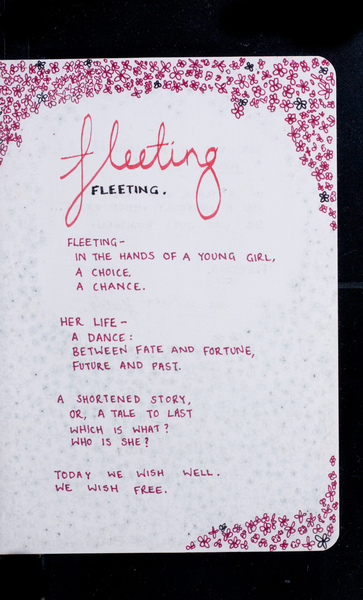 fleeting
FLEETING.
FLEETING-
IN THE HANDS OF A YOUNG GIRL,
A CHOICE,
A CHANCE.
HER LIFE-
A DANCE:
BETWEEN FATE AND FORTUNE,
FUTURE AND PAST.
A SHORTENED STORY,
OR, A TALE TO LAST
WHICH IS WHAT?
WHO IS SHE?
TODAY WE WISH WELL.
WE WISH FREE.